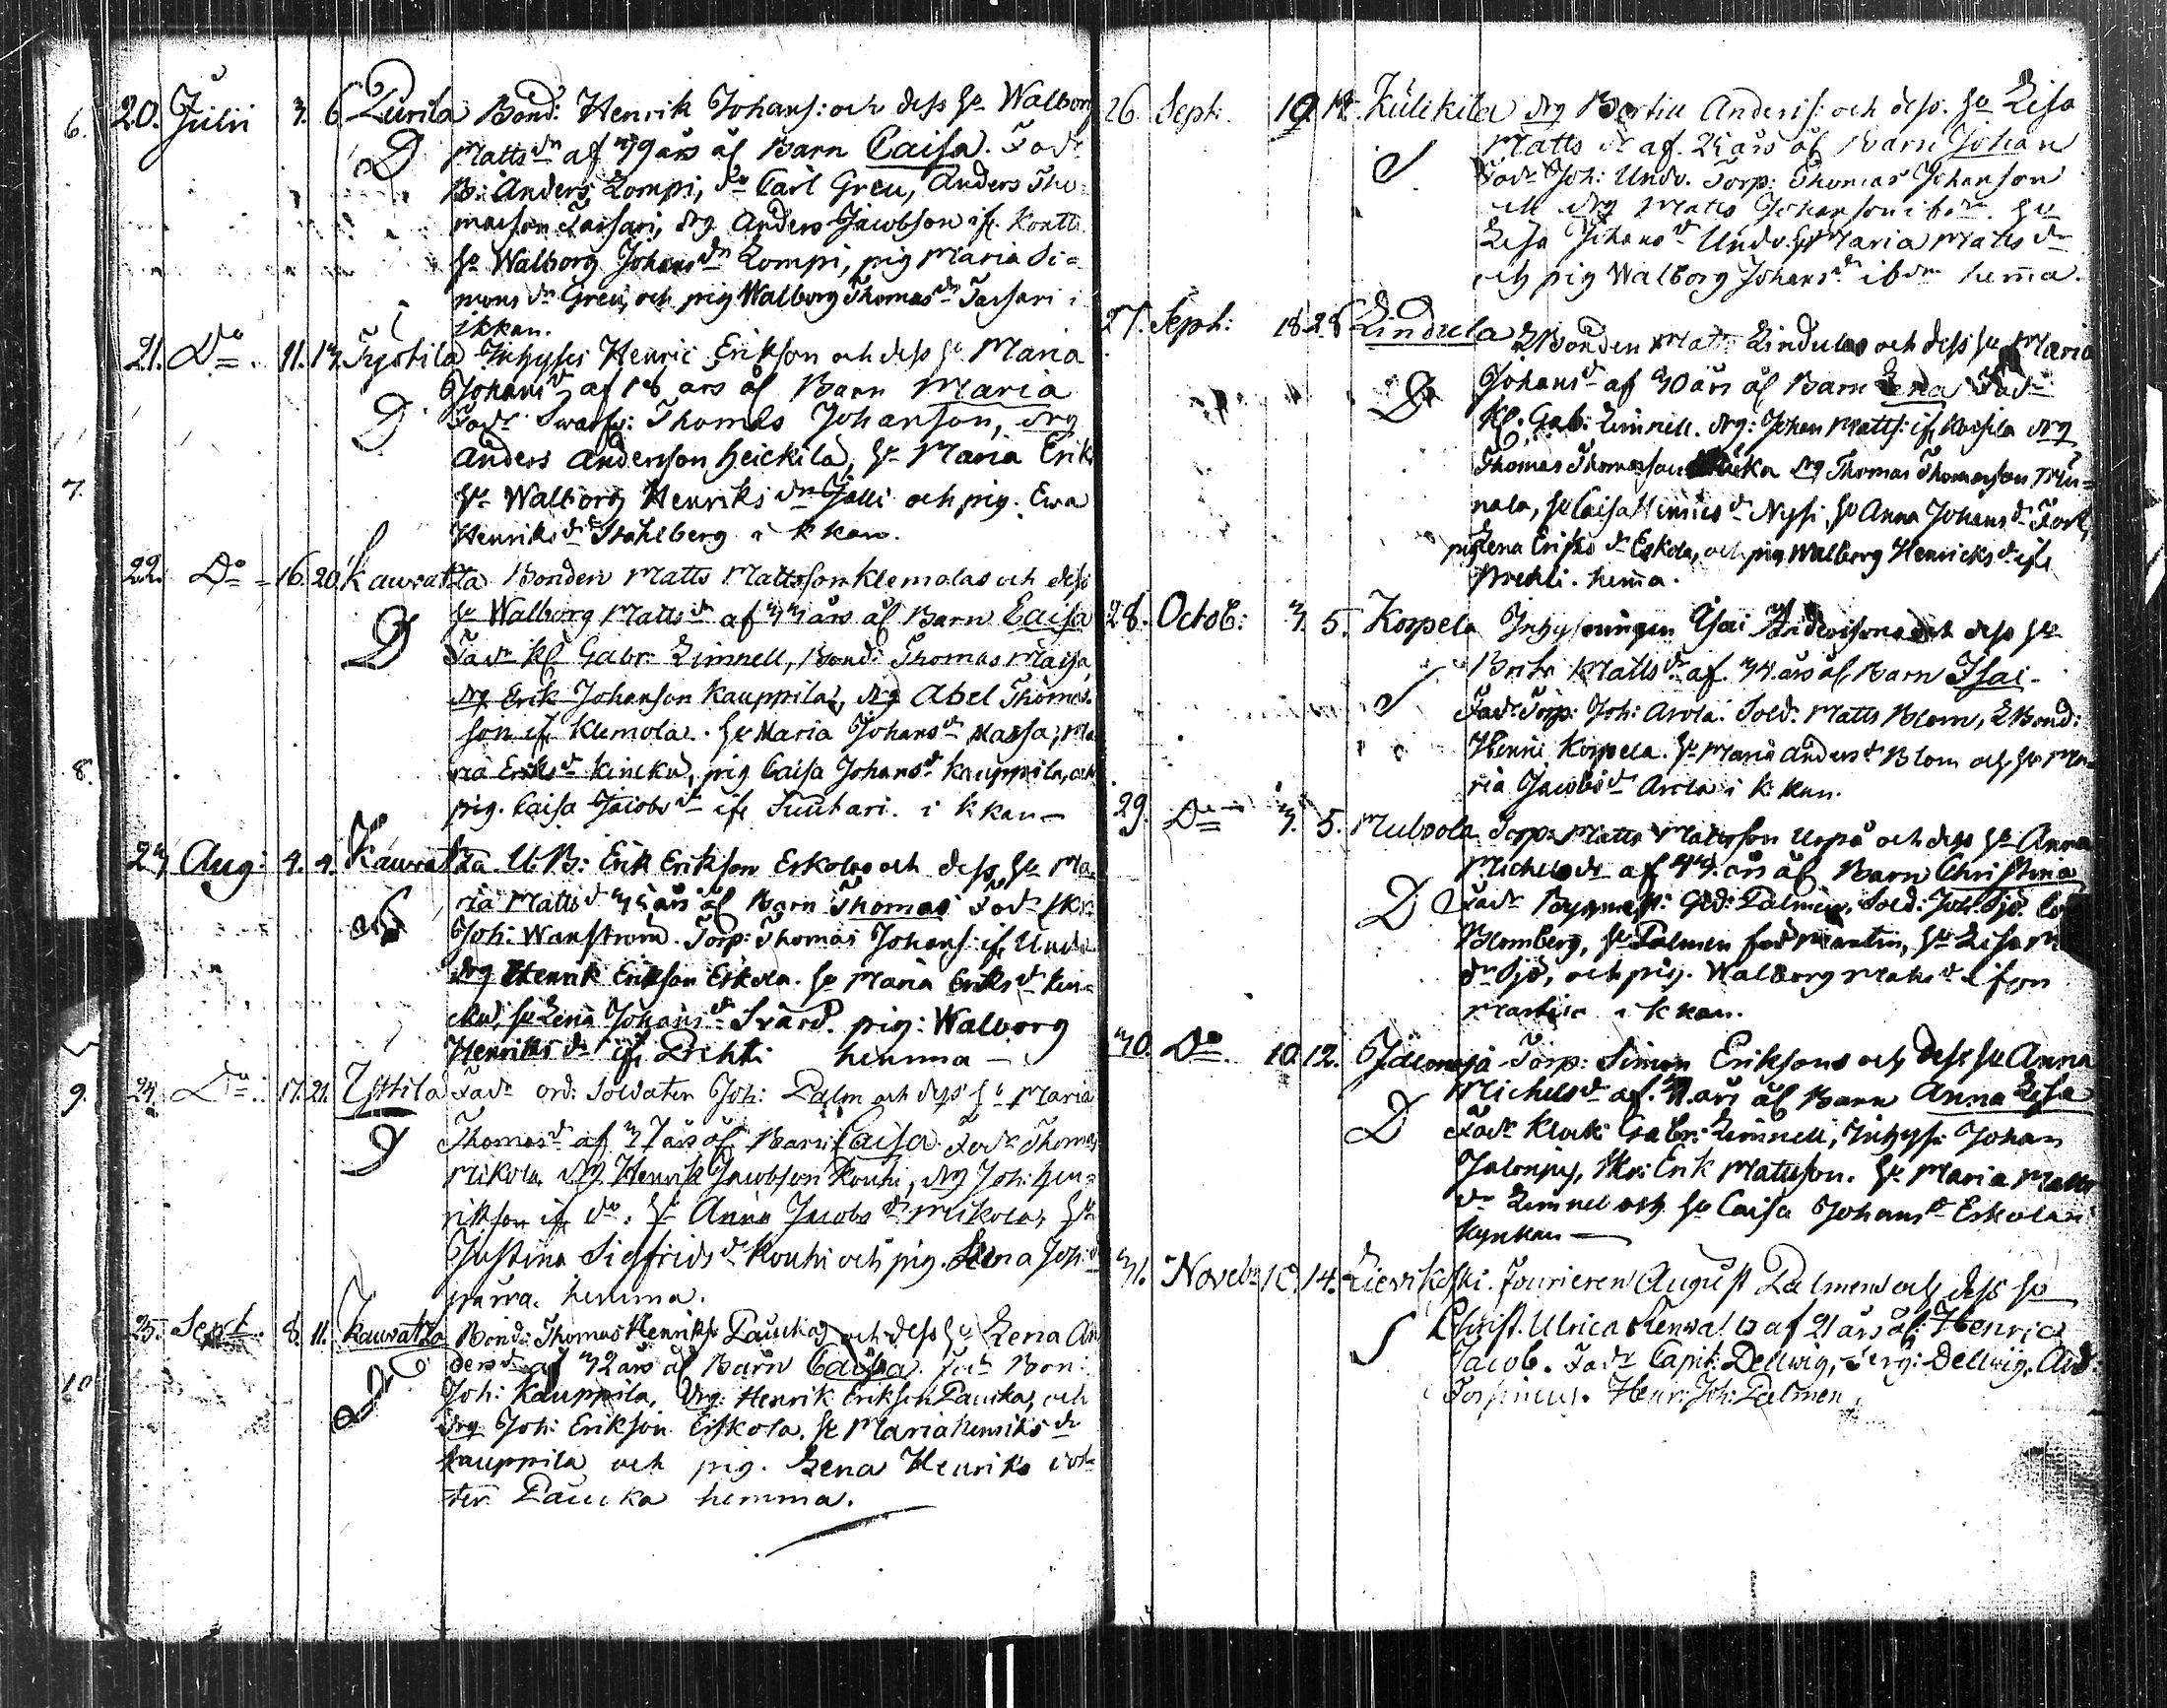 6.
20. Julii 3. 6. Lurila Bond: Henrik Johans: och dess h: Walborg
D Matts dr af 39 års ål Barn Caisa. Fad:
B: Anders Lompi, do Carl Greu, Anders Tho=
masson Tassari, drg Anders Jacobson ifr. Kontti
h: Walborg Johans dr Lompi, pig Maria Si=
mons dr Greu, och pig Walborg Thomas dr Tassari i
ikkan.
21. Do 11. 13. Inhyses Henric Erikson och dess h: Maria
D Johans dr af 18 års ål Barn Maria
Fadr Thomas Johanson, drg
Anders Anderson Heickila, h: Maria Eriks
h: Walborg Henriks dr Jalli och pig. Ewa
Henriks dr Stahlberg i k kan.
7.
22. Do 16. 20. Kauvatza Bonden Matts Mattsson Klemolas och dess
D h: Walborg Matts dr af 33 års ål Barn Caisa
Fadr Kl Gabr. Limnell, Bond: Thomas Maija,
drg Erik Johanson Kauppila, drg Abel Thomas=
son ifr Klemola. h: Maria Johans dr Massa, Ma
ria Eriks dr Kincku, pig Caisa Johans dr Kauppila, och
pig. Caisa Jacobs dr ifr Suuhari. i k kan
8.
23 Aug: 4. 4. Kauvatza U.B: Erik Erikson Eskolas och dess h: Ma
ria Matts dr 35 års ål Barn Thomas Fadr
Joh: Wanstrom. Torp: Thomas Johans: ifr Undo
drg Henrik Erikson Eskola. h: Maria Eriks dr Kin=
cku, h: Lena Johans dr Svärd. pig: Walborg
Henriks dr ifr Prihti hemma
9.
24. Do: 17. 21. Yttila Fadr ord: Soldaten Joh: Palm och dess h: Maria
D Thomas dr af 37 års ål Barn Caisa. Fadr Thomas
Mikola drg Henrik Jacobson Rouhi, drg Joh: Hen=
rikson ifr do. h: Anna Jacobs dr Mikola, h:
Justina Sigfrids dr Rouhi och pig. Lena Joh: dr
hemma.
25. Sept. 8. 11. Kauvatza Bond: Thomas Henriks Paucka och dess h: Lena An
ders dr af 32 års ål Barn Caisa. Fadr Bon:
10
Joh: Kauppila, Drg: Henrik Erikson Paucka, och
drg Joh: Erikson Eskola. h: Maria Henriks dr
Kauppila och pig. Lena Henriks dot=
ter Paucka hemma.
26. Sept: 19. Külikila drg Bertill Anders: och dess. h: Lisa
S Matts dr af. 25 års ål Barn Johan
Fadr Joh: Undo. Torp: Thomas Johanson
och drg Matts Johanson ibdm. h:
Lisa Johans dr Undo. h: Maria Matts dr
och pig Walborg Johans dr ibdm hema.
27. Sept: 18. 28 Lindula Bonden Matts Lindulas och dess h: Maria
D Johans dr af 30 års ål Barn Lena Fadr
Kl. Gab: Limnell. drg: Johan Matts: ifr drg
Thomas Thomasson drg Thomas Thomasson
nala, h: Caisa Henrics dr Nysi, h: Anna Johans dr
pig Lena Eriks dr Eskola, och pig Walborg Henricks dr ifr
Prihti. hema.
28. Octob: 3. 5. Korpela Inhysningen Isai Andersons och dess h:
S Matts dr af. 34. års ål Barn Isai.
Fadr. Torp: Joh: Arola. Sold: Matts Blom, Bond:
Henric Korpela. h: Maria Anders dr Blom och h: Ma=
ria Jacobs dr Arola i k kan.
29. Do 3. 5. Torp: Matts Mattsson Uopa och dess h: Anna
Michels dr af 34. års ål Barn Christina
D Fadr Palmen, Sold: Joh: Sjö.
Blomberg, h: Palmen Martin, h: Lisa
dr Sjö, och pig. Walborg Matts dr ifrån
Martin i k kan.
30. Do. 10. 12. Torp: Simon Eriksons och dess h: Anna
D Michels dr af. års ål Barn Anna Lisa
Fadr Klock: Gabr: Limnell, Inhys: Johan
Erik Mattsson. h: Maria Matts
dr Limnel och h: Caisa Johans dr Eskolan
kyrkan
31. Novebr 10. 14. Lievikoski. Fourieren August Palmen och dess h:
S Christ. Ulrica af 21 års ål Henric
Jacob. Fadr Capit: Dellwig, Serg: Dellwig. And
Forsinius. Henr: Joh: Palmen